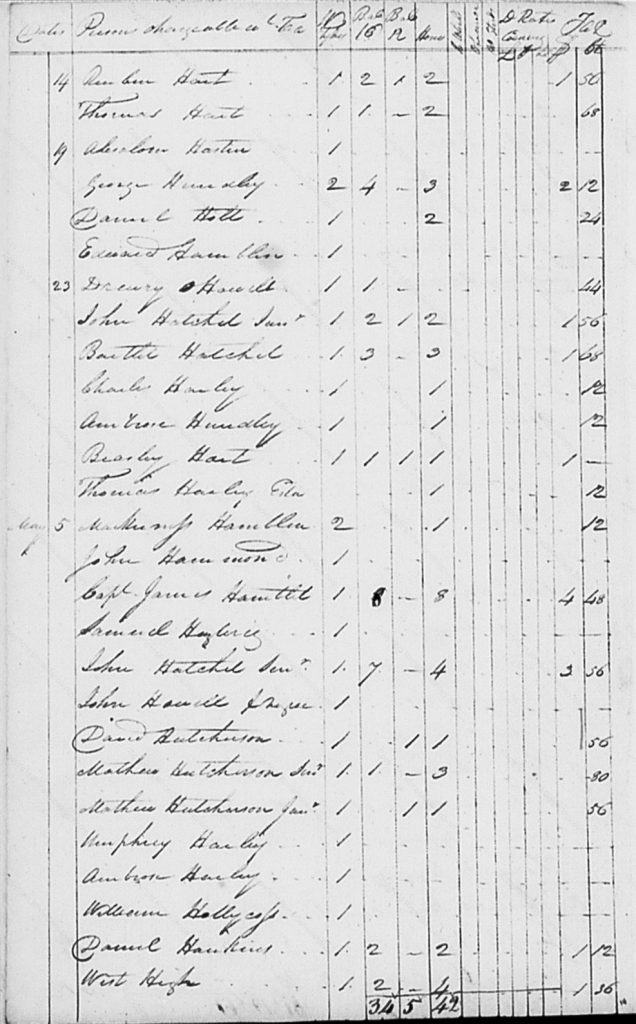 Dates Persons chargeable wt. Tax Bls 16 Bls 12 Horses D Rates
14 Hart 1 2 1 2 1 50
Thomas Hart 1 1 - 2 68
19 Absolom 1
George Hundley 2 4 - 3 2 12
Daniel Holt 1 2 24
Edward Hamblin 1
23 Drewry Howell 1 1 - 44
John Hatchel Junr 1 2 1 2 1 56
Bartlet Hatchel 1 3 - 3 1 68
Charles Harley 1 1 12
Ambrose Hundley 1 1 12
Beasley Hart 1 1 1 1 1 -
Thomas Harley Esta 1 12
May 5 Hamblin 2 1 12
John Hammond 1
Capt. James 1 8 - 8 4 48
Samuel 1
John Hatchel Senr 1 7 - 4 3 56
John Howell 1
David Hutcherson 1 1 1 56
Mathew Hutcherson Senr 1 1 - 3 80
Mathew Hutcherson Junr 1 1 1 56
Umphrey Harley 1
Ambrose Harley 1
William 1
Daniel Hawkins 1 2 - 2 1 12
West High 1 2 - 4 1 36
34 5 42